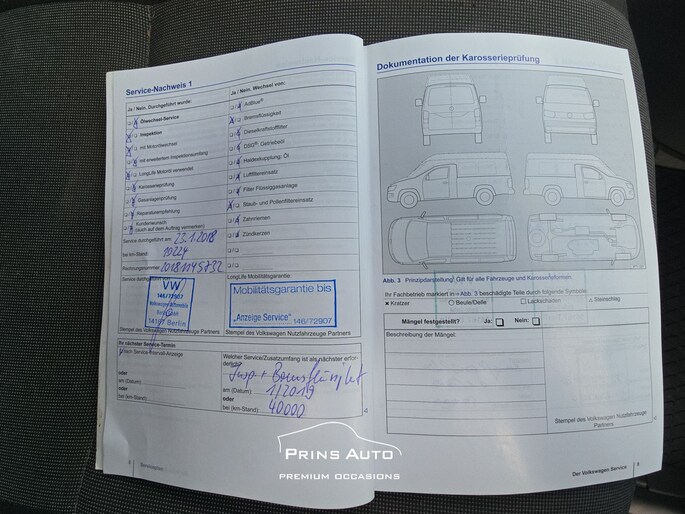 Service-Nachweis 1
Ja / Nein. Durchgeführt wurde:
Ölwechsel-Service
Inspektion
mit Motorölwechsel
mit erweitertem Inspektionsumfang
LongLife Motoröl verwendet
Karosserieprüfung
Gasanlagenprüfung
Reparaturempfehlung
Kundenwunsch
(auch auf dem Auftrag vermerken)
Service durchgeführt am: 23.1.2018
bei km-Stand: 10224
Rechnungsnummer:
Service durchgeführt
VW
146/72907
Volkswagen Automobile
14167 Berlin
Stempel des Volkswagen Nutzfahrzeuge Partners
Ja / Nein. Wechsel von:
AdBlue®
Bremsflüssigkeit
Dieselkraftstofffilter
DSG® Getriebeöl
Haldexkupplung: Öl
Luftfiltereinsatz
Filter Flüssiggasanlage
Staub- und Pollenfiltereinsatz
Zahnriemen
Zündkerzen
LongLife Mobilitätsgarantie:
Mobilitätsgarantie bis
„Anzeige Service"
146/72907
Stempel des Volkswagen Nutzfahrzeuge Partners
Ihr nächster Service-Termin:
nach Service-Intervall-Anzeige
oder
am (Datum):
oder
bei (km-Stand):
Welcher Service/Zusatzumfang ist als nächster erfor-
derlich:
Insp. + Bremsflüssigkeit
am (Datum): 1/2019
oder
bei (km-Stand): 40000
8 Serviceplan
Dokumentation der Karosserieprüfung
Abb. 3 Prinzipdarstellung: Gilt für alle Fahrzeuge und Karosserieformen.
Ihr Fachbetrieb markiert in ⇒ Abb. 3 beschädigte Teile durch folgende Symbole:
× Kratzer ○ Beule/Delle □ Lackschaden ☆ Steinschlag
Mängel festgestellt? Ja: Nein:
Beschreibung der Mängel:
Stempel des Volkswagen Nutzfahrzeuge
Partners
Der Volkswagen Service 9
PRINS AUTO
PREMIUM OCCASIONS